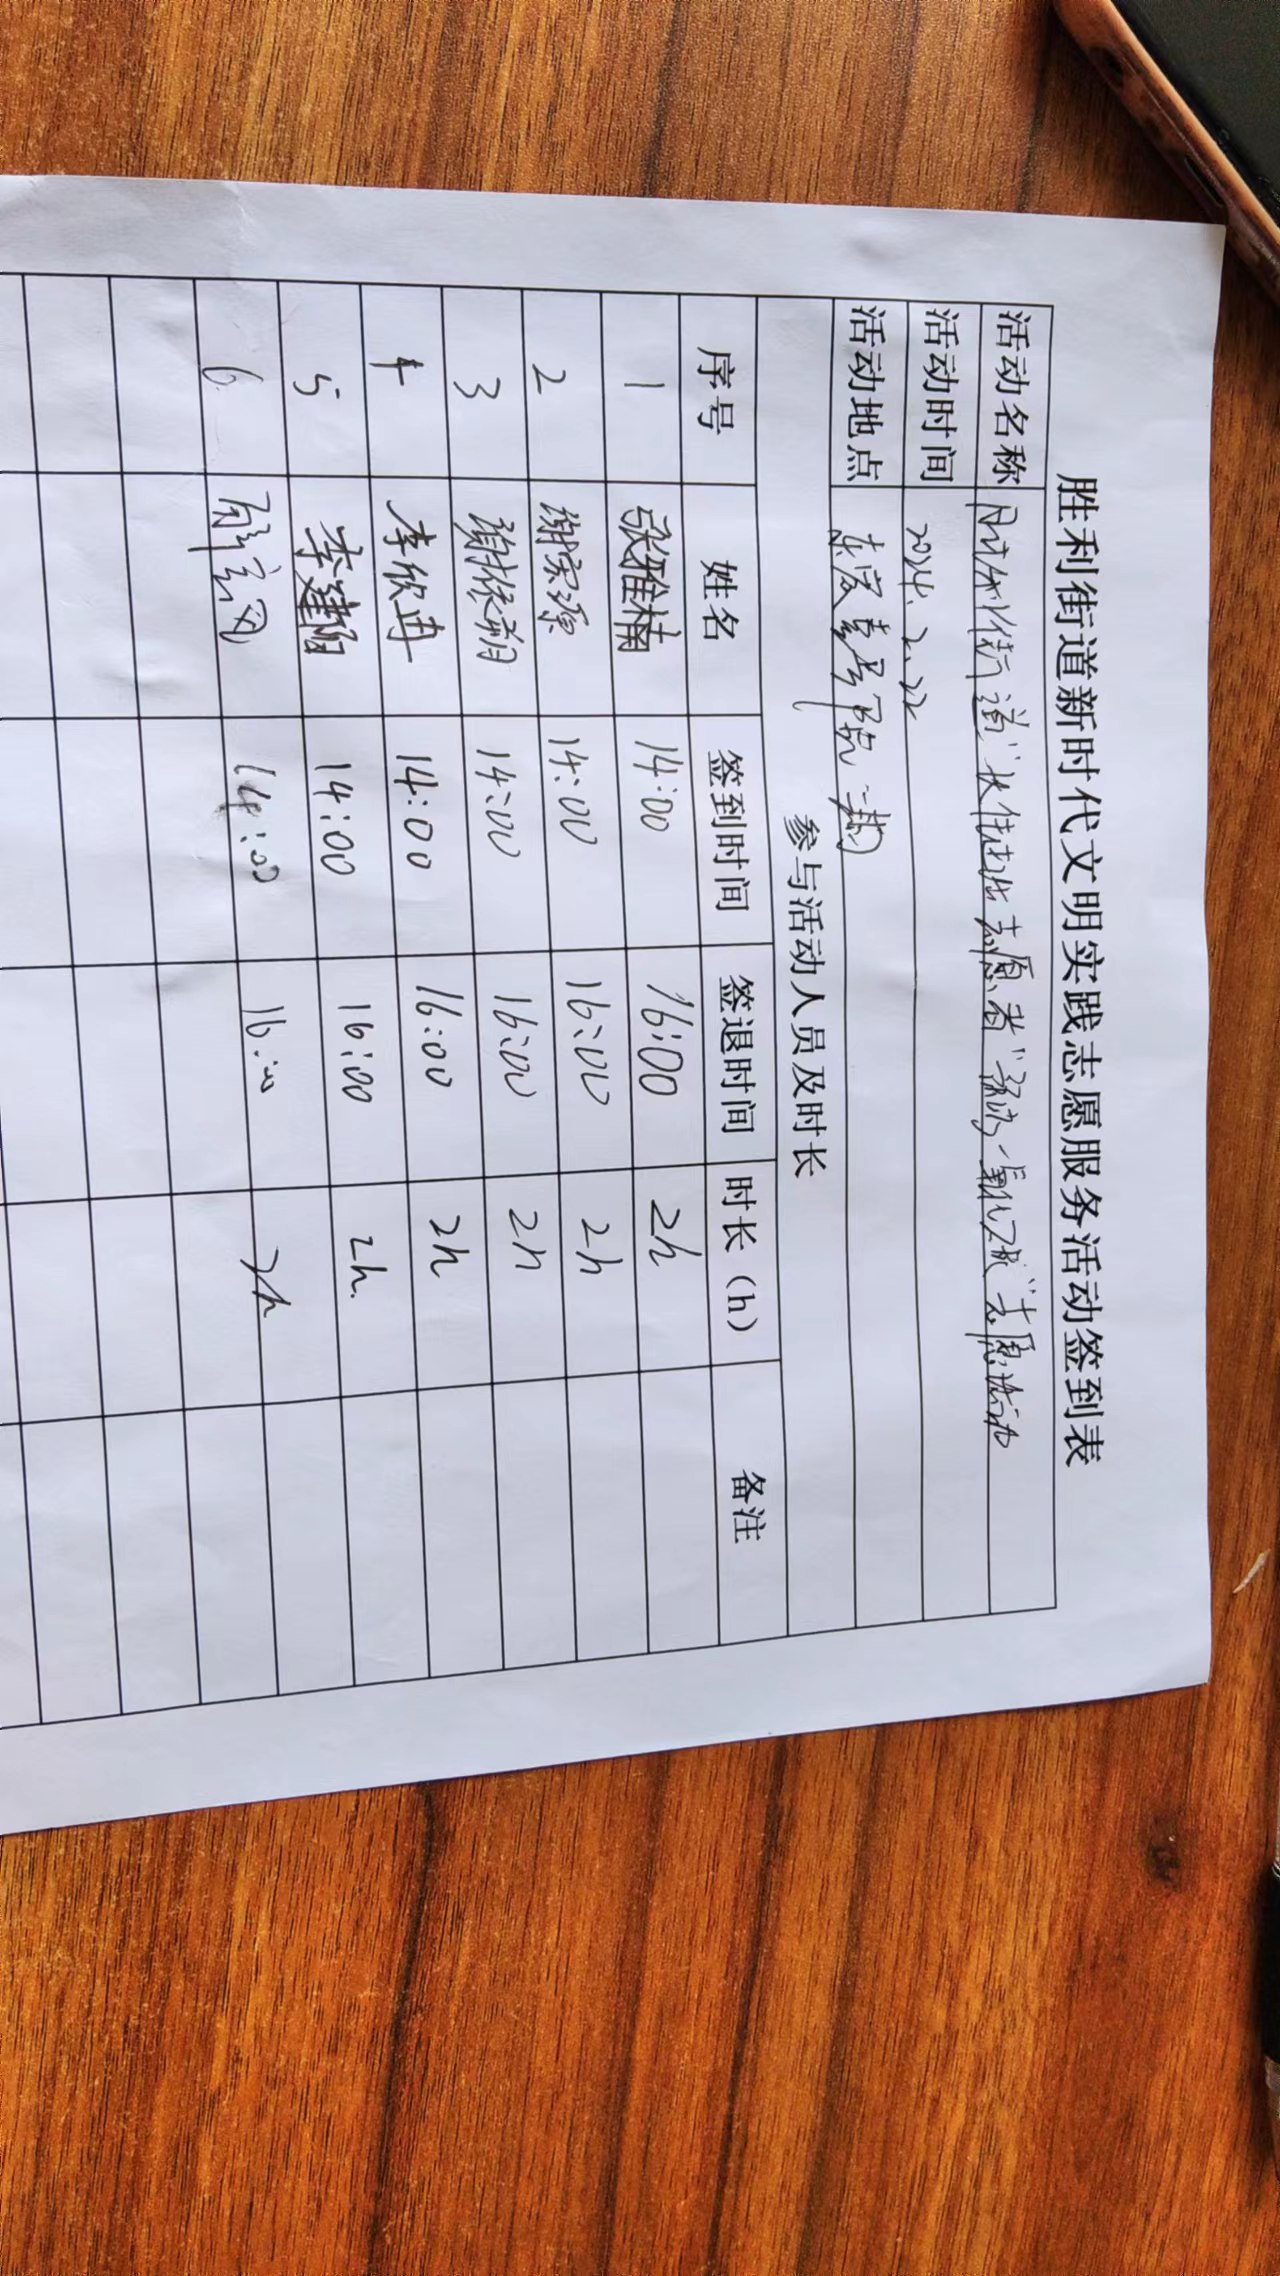 胜利街道新时代文明实践志愿服务活动签到表
活动名称 胜利街道 志愿者 志愿活动
活动时间 2024.2.22
活动地点
参与活动人员及时长
序号 姓名 签到时间 签退时间 时长（h） 备注
1 张雅楠 14:00 16:00 2h
2 谢宗源 14:00 16:00 2h
3 谢依朔 14:00 16:00 2h
4 李欣冉 14:00 16:00 2h
5 李建阳 14:00 16:00 2h.
6 14:00 16:00 2h